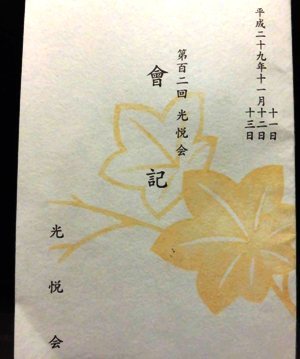 平成二十九年十一月
十一日
十二日
十三日
第百二回 光悦会
會記
光悦会